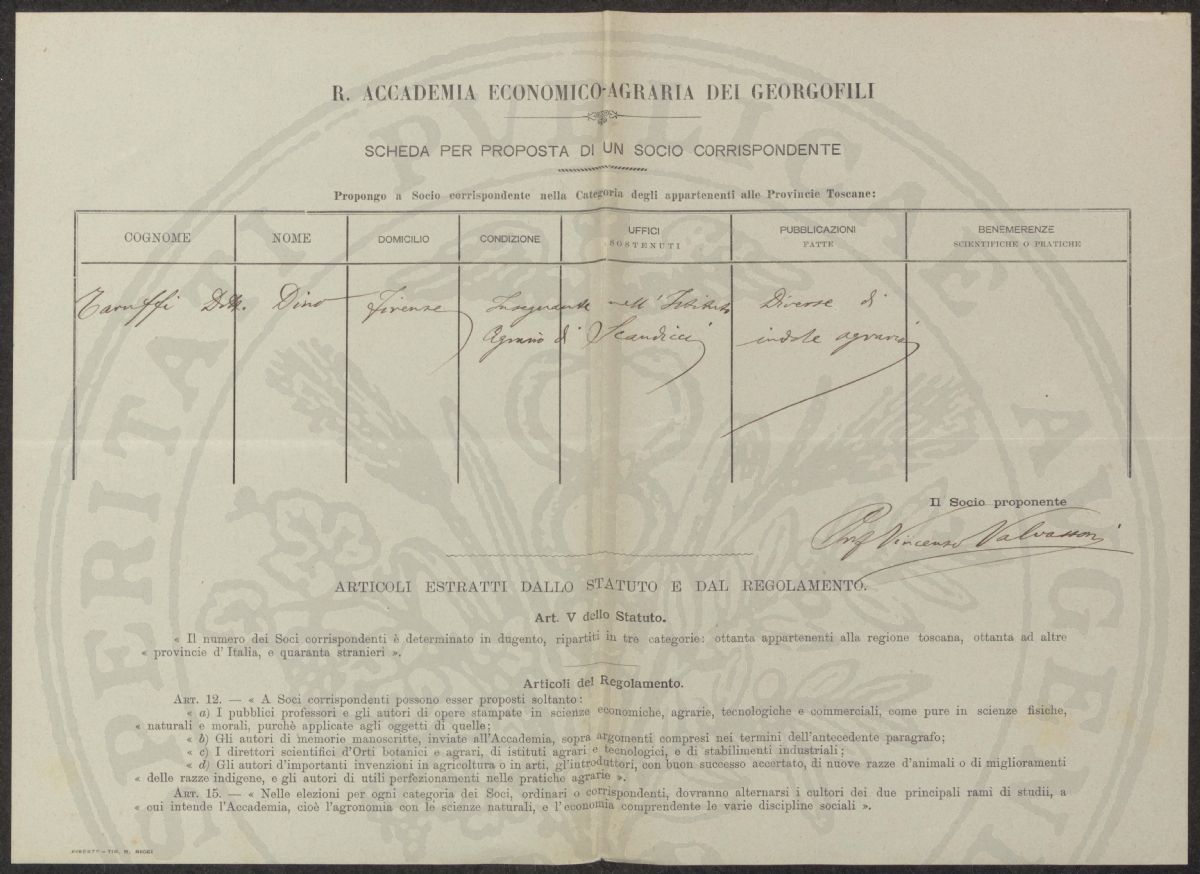 R. ACCADEMIA ECONOMICO-AGRARIA DEI GEORGOFILI
SCHEDA PER PROPOSTA DI UN SOCIO CORRISPONDENTE
Propongo a Socio corrispondente nella Categoria degli appartenenti alle Provincie Toscane:
COGNOME
NOME
DOMICILIO
CONDIZIONE
UFFICI
SOSTENUTI
PUBBLICAZIONI
FATTE
BENEMERENZE
SCIENTIFICHE O PRATICHE
Taruffi Dott. Dino Firenze Insegnante nell'Istituto Diverse di
Agrario di Scandicci indole agraria
Il Socio proponente
Prof Vincenzo Valvassori
ARTICOLI ESTRATTI DALLO STATUTO E DAL REGOLAMENTO.
Art. V dello Statuto.
« Il numero dei Soci corrispondenti è determinato in dugento, ripartiti in tre categorie: ottanta appartenenti alla regione toscana, ottanta ad altre
« provincie d'Italia, e quaranta stranieri ».
Articoli del Regolamento.
ART. 12. — « A Soci corrispondenti possono esser proposti soltanto:
« a) I pubblici professori e gli autori di opere stampate in scienze economiche, agrarie, tecnologiche e commerciali, come pure in scienze fisiche,
« naturali e morali, purchè applicate agli oggetti di quelle;
« b) Gli autori di memorie manoscritte, inviate all'Accademia, sopra argomenti compresi nei termini dell'antecedente paragrafo;
« c) I direttori scientifici d'Orti botanici e agrari, di istituti agrari e tecnologici, e di stabilimenti industriali;
« d) Gli autori d'importanti invenzioni in agricoltura o in arti, gl'introduttori, con buon successo accertato, di nuove razze d'animali o di miglioramenti
« delle razze indigene, e gli autori di utili perfezionamenti nelle pratiche agrarie ».
ART. 15. — « Nelle elezioni per ogni categoria dei Soci, ordinari o corrispondenti, dovranno alternarsi i cultori dei due principali rami di studii, a
« cui intende l'Accademia, cioè l'agronomia con le scienze naturali, e l'economia comprendente le varie discipline sociali ».
FIRENZE — TIP. M. RICCI
PROSPERITATI PUBLICAE AVGENDAE